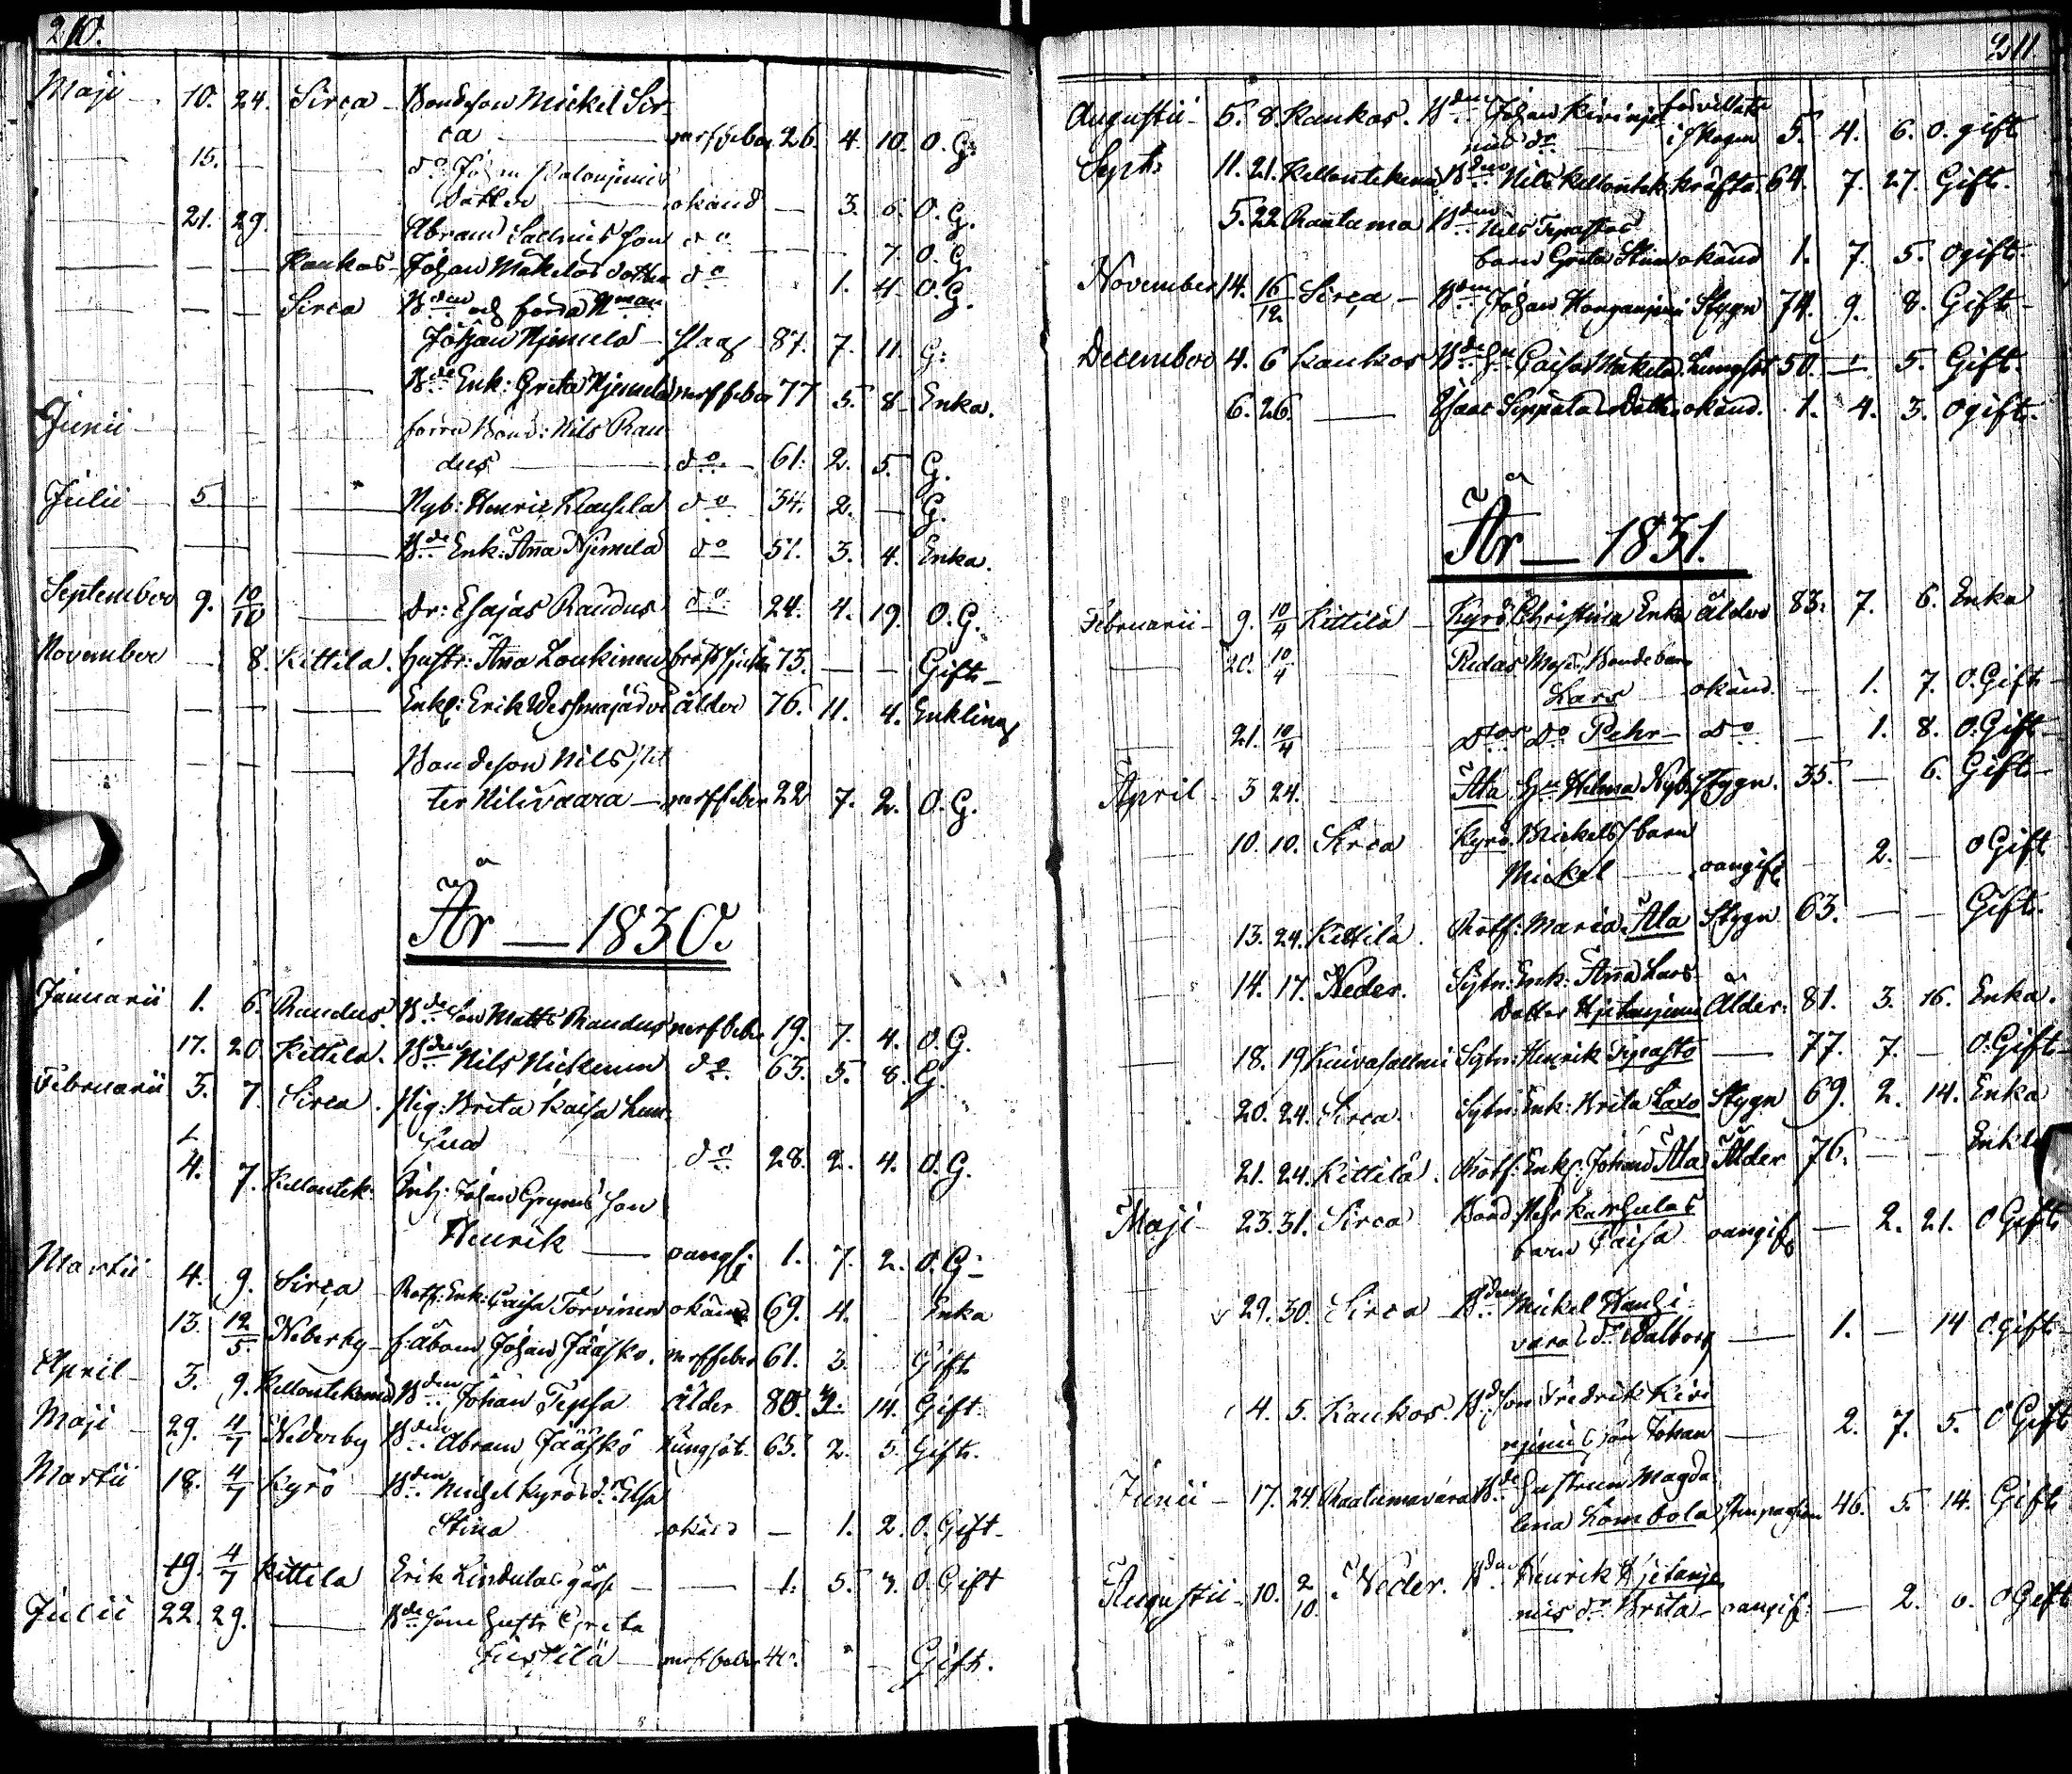 210.
Maji 10. 24. Sirca Bondeson Mickel Sir-
ca nerffeber 26. 4. 10. O. G.
15. do Johan
dotter okänd 3. 6. O. G.
21. 29. Abram son do 7 O. G.
Kaukos Johan Mäkelas dotter do 1. 4 O. G.
Sirca Bden och förra Nman
Johan Njemelä Slag 87. 7. 11. G.
Bde Enk: Greta Njemelä nerffeber 77 5. 8 Enka.
Junii förra Bond: Nils Rau
dus do 61. 2. 5. G.
Julii 5. Nyb: Henric do 34. 2. G.
Bde Enk: Aña Njemelä do 51. 3. 4. Enka.
September 9. 10/10 Dr: Esajas Raudus do 24. 4. 19. O. G.
November 8. Kittila. Hustr: Aña Loukinen bröstsjuka 73. Gift
Enkl: Erik ålder 76. 11. 4. Enkling
Bondeson Nils Pet
ter Nilivaara nerffeber 22 7. 2. O. G.
År 1830.
Januarii 1. 6. Raudus. Bde son Matts Raudus nerffeber 19. 7. 4. O. G.
17. 20 Kittila. Bden Nils Nickunen do 63. 5. 8. G.
Februarii 5. 7. Sirca. Pig: Brita Kaisa
do 28. 2. 4. O. G.
4. 7. Kellontek: Johan son
Henrik oangif: 1. 7. 2. O. G.
Martii 4. 9. Sirca Rotf: Enk: Caisa Torvinen okänd 69. 4. Enka
13. 12/5. Nederby f: åboen Johan Jääsko. nerffeber 61. 3. Gift
April 3. 9. Kellontekemä Bden Johan Tepsa Ålder 80. 2. 14. Gift
Maji 29. 4/7 Nederby Bden Abram Jääskö Lungsot 65. 2. 5. Gift.
Martii 18. 4/7 Kyrö Bden Michel Kyrös dr Elsa
Stina okänd 1. 2. O. Gift
19. 4/7 Kittila Erik Lindulas gåsse 1. 5. 3. O. Gift
Julii 22. 29. Bde sone hustr Greta
nerffeber 40. Gift.
211.
Augustii 5. 8. Kaukos. Bden Johan Kirinje förvillats
mis dr i skogen 5. 4. 6. O. gift
Sept: 11. 21. Kellontekemä Bden Nils Kellontek: kräfta 64. 7. 27. Gift.
5. 22 Raatama Bden Nils Tepastos
barn Greta Stina okänd 1. 7. 5. Ogift.
November 14. 16/12 Sirca Bden Johan Stygn 74. 9. 8. Gift
December 4. 6 Kaukos Bde Hu Caisa Mäkelä. Lungsot 50. 5. Gift.
6. 26. Isaac Seppälas Dotter okänd. 1. 4. 3. Ogift.
År 1831.
Februarii 9. 10/4 Kittilä Kyrö Christina Enka Ålder 83. 7. 6. Enka
20. 10/4 Bonde barn
Lars okänd. 1. 7. O. Gift
21. 10/4 Dito Do Pehr Do 1. 8. O. Gift
April 3 24. Ala Hu Helena Nyb. Stygn. 35. 6. Gift
10. 10. Sirca Kyrö Mickels barn
Mickel oangif: 2. O Gift
13. 24. Kittila. Rotf: Maria Ala Stygn 63. Gift.
14. 17. Neder. Sytn: Enk: Aña Lars
Dotter Hjetanjemi Ålder. 81. 3. 16. Enka.
18. 19 Kuivasalmi Sytn: Henrik Tepasto 77. 7. O. Gift
20. 24. Sirca. Sytn: Enk: Brita Laxo Stygn 69. 2. 14. Enka
21. 24. Kittilä. Rotf: Enkl: Johan Ala Ålder 76. Enkli
Maji 23. 31. Sirca Bond Pehr Karhulas
barn Caisa oangif: 2. 21. O Gift
29. 30. Sirca Bden Mickel Hanhi-
varas dr Walborg 1. 14 O. gift
4. 5. Kaukos Bdson Fredrik Kiri
njemis son Johan 2. 7. 5. O Gift
Junii 17. 24. Raatamavara Bde hustrun Magda
lena Lombola 46. 5. 14. Gift
Augustii 10. 2/10. Neder. Bden Henrik Hjetanje
mis dr Brita oangif: 2. 6. O Gift